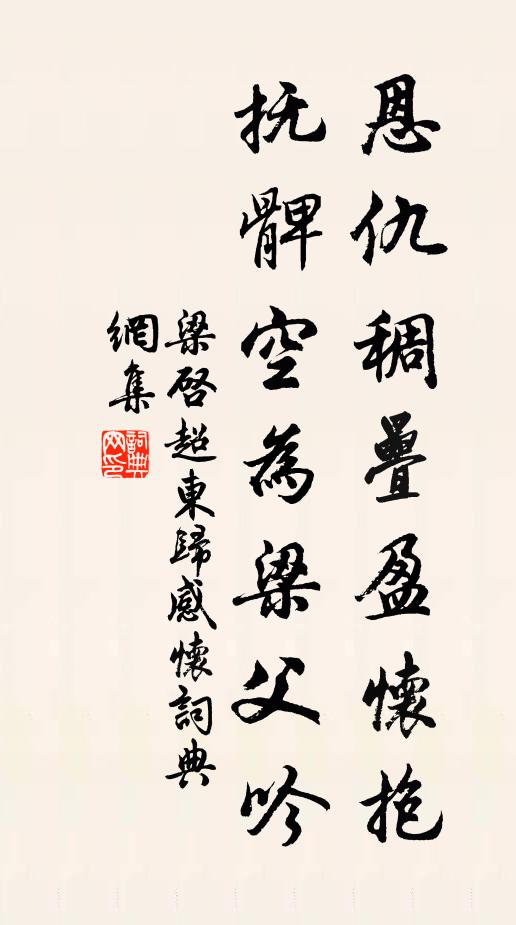 恩仇稠疊盈懷抱
抚髀空為梁父吟
梁啓超東歸感懷詞典
網集
詞典
网印